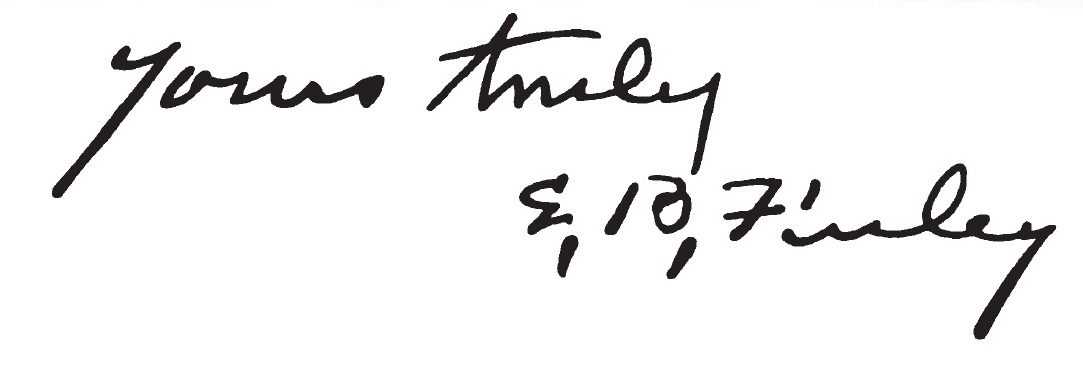 Yours truly
E, B, Finley